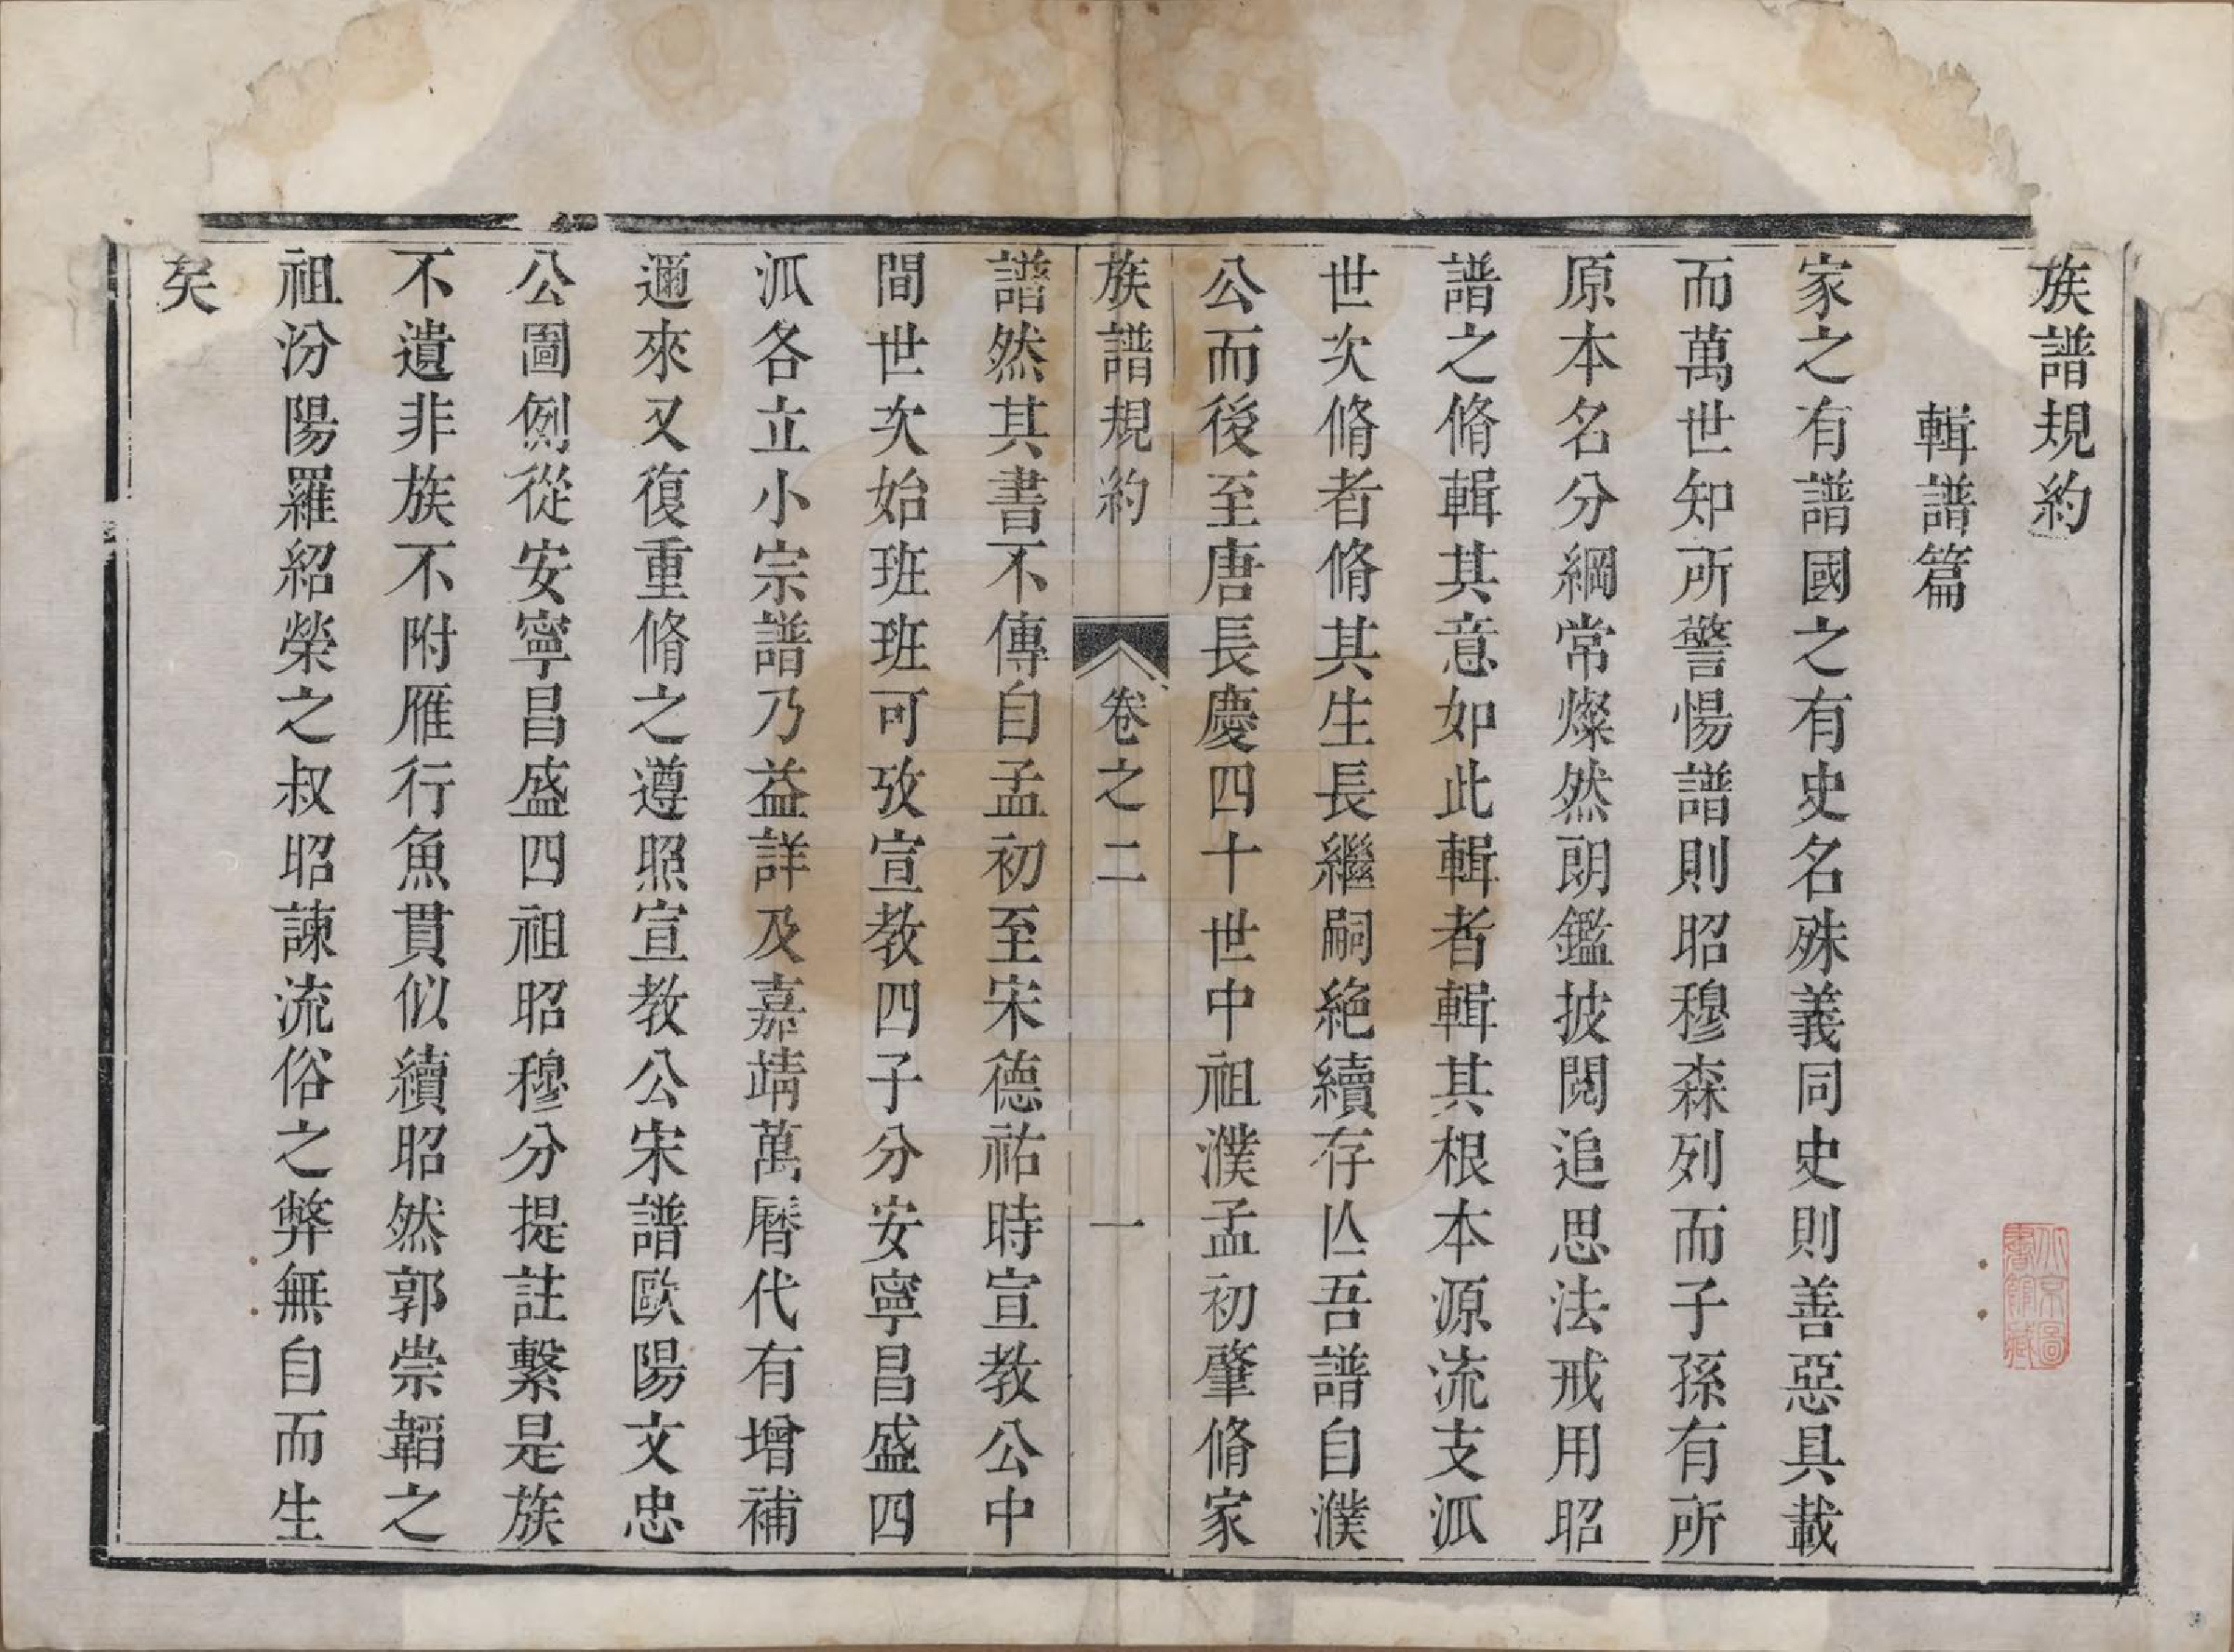 族譜規約
輯譜篇
家之有譜國之有史名殊義同史則善惡具載
而萬世知所警惕譜則昭穆森列而子孫有所
原本名分綱常燦然朗鑑披閱追思法戒用昭
譜之脩輯其意如此輯者輯其根本源流支派
世次脩者脩其生長繼嗣絕續存亾吾譜自濮
公而後至唐長慶四十世中祖濮孟初肇脩家
族譜規約 卷之二 一
譜然其書不傳自孟初至宋德祐時宣教公中
間世次始班班可攷宣教四子分安寧昌盛四
派各立小宗譜乃益詳及嘉靖萬曆代有增補
邇來又復重脩之遵照宣教公宋譜歐陽文忠
公圖例從安寧昌盛四祖昭穆分提註繫是族
不遺非族不附雁行魚貫似續昭然郭崇韜之
祖汾陽羅紹榮之叔昭諫流俗之弊無自而生
矣
北京圖
書館藏